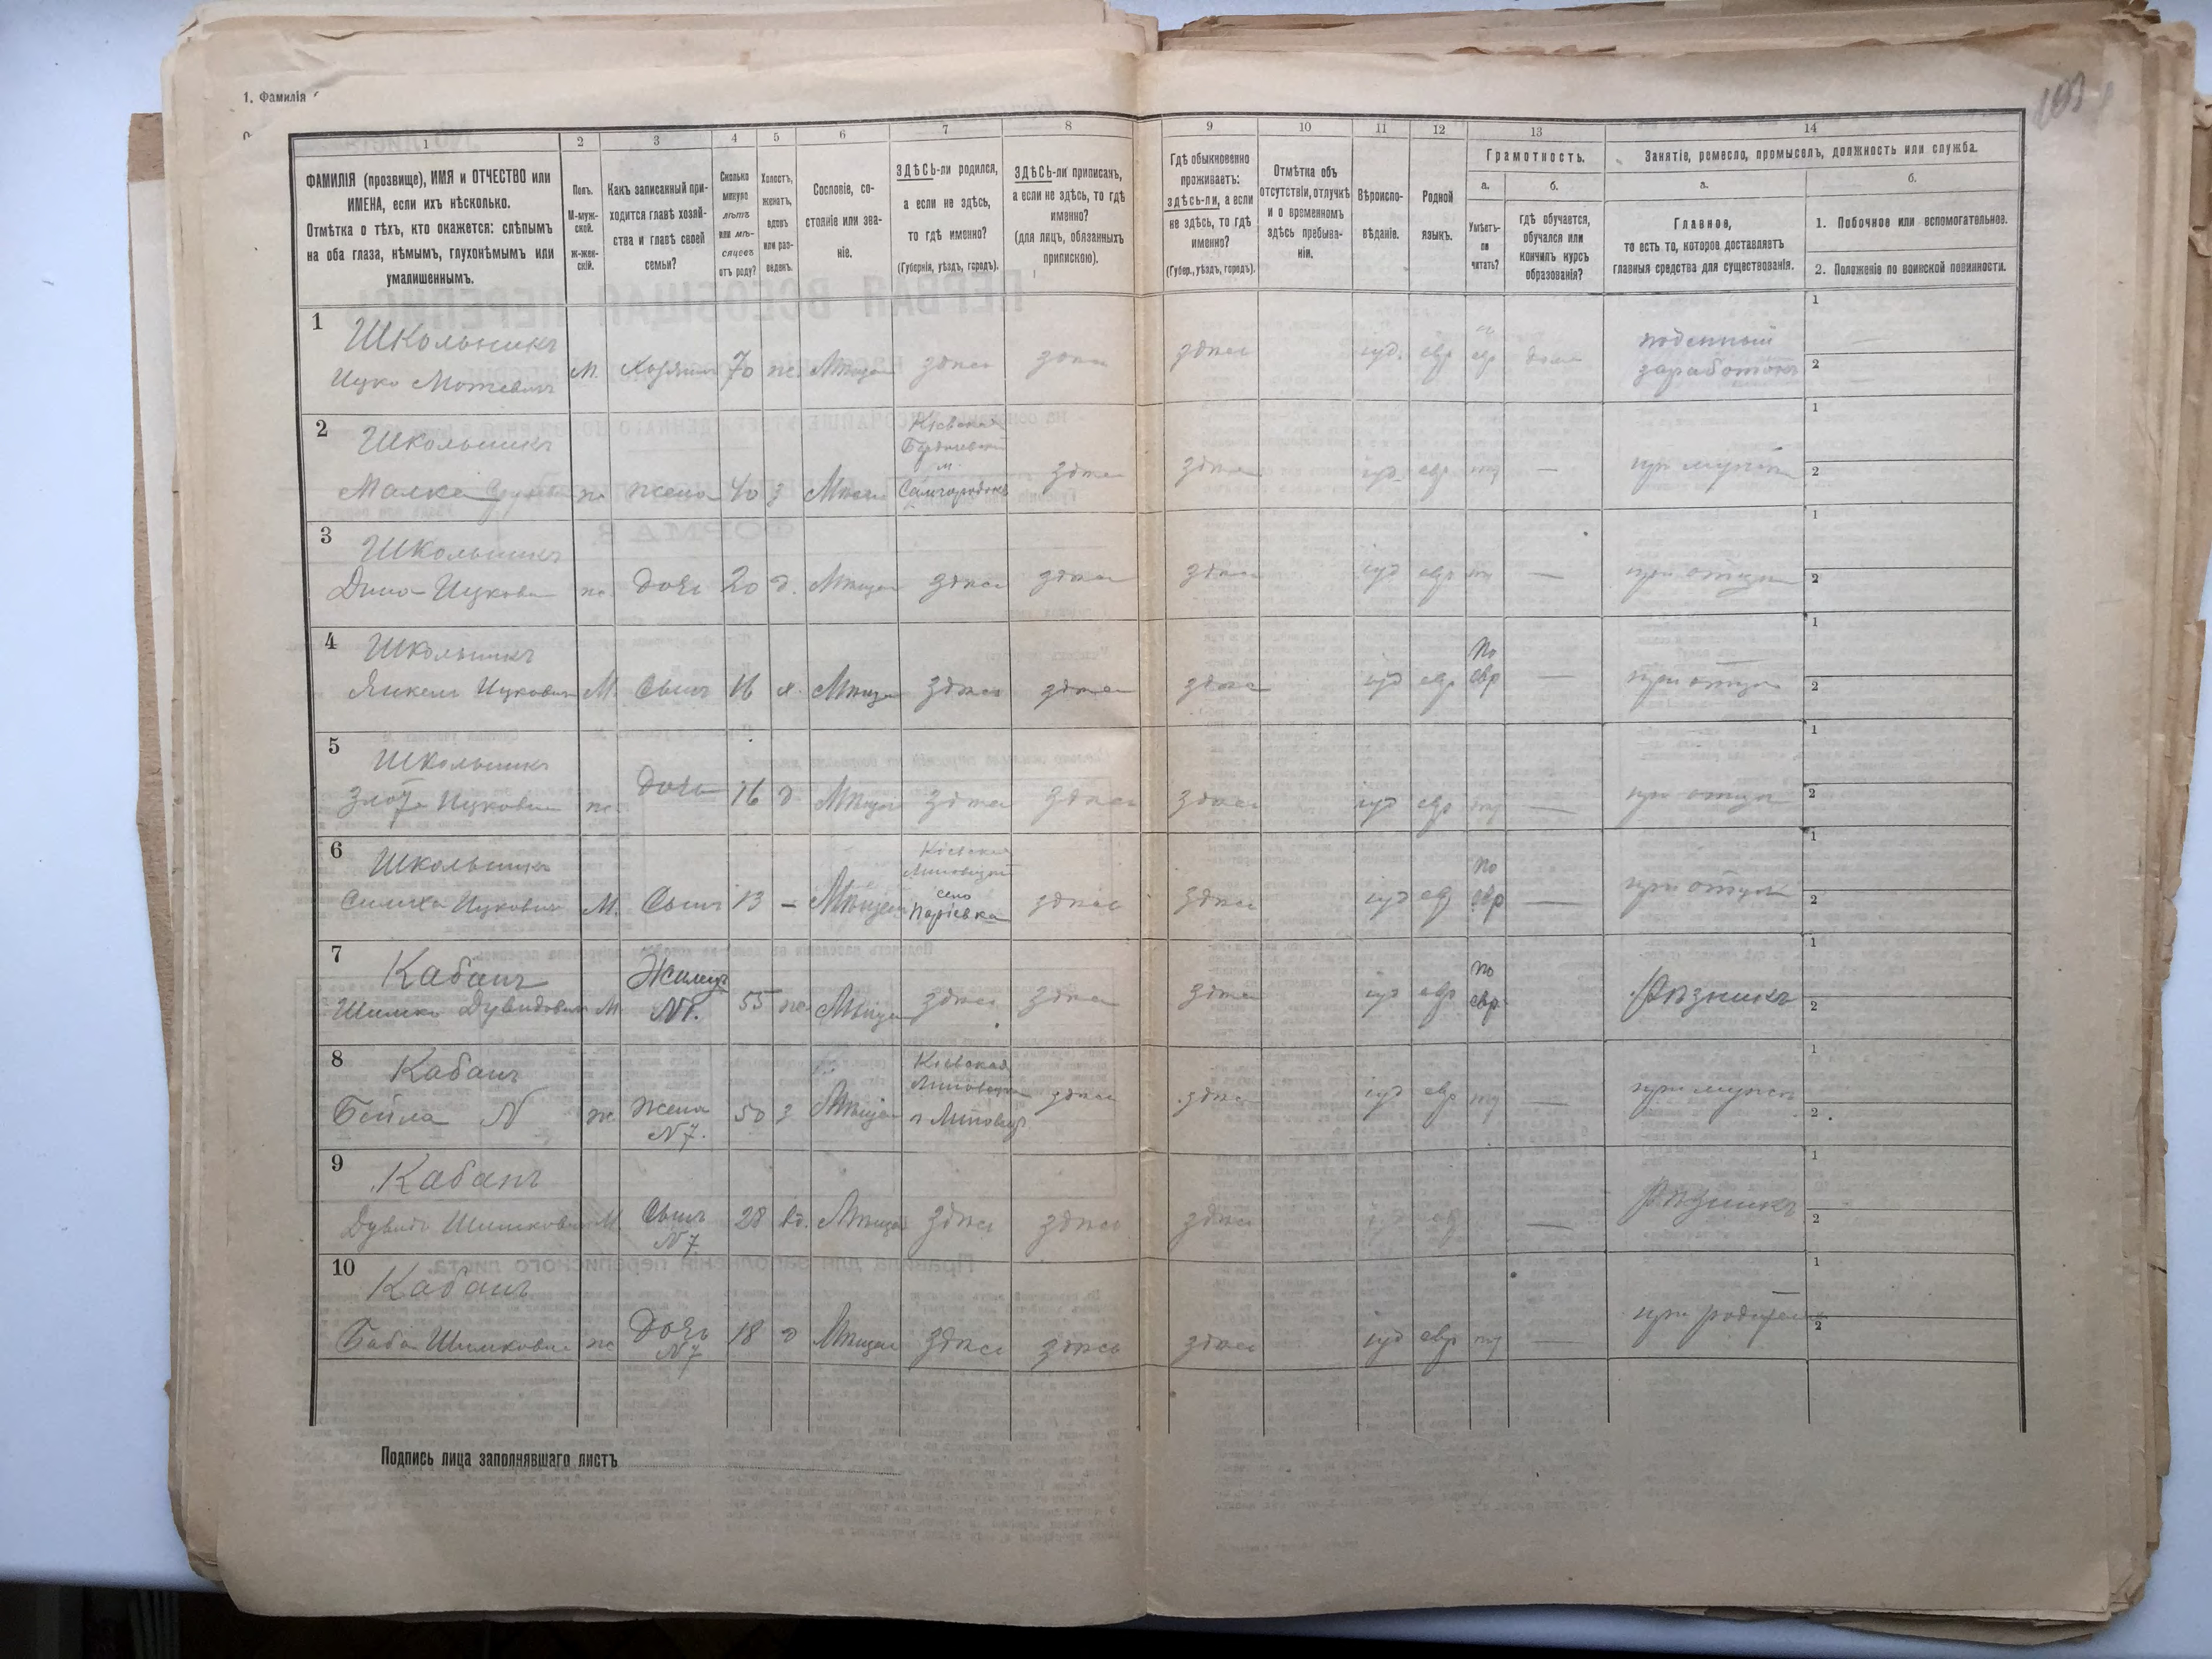 1. Фамилія
103
1
2
3
4
5
6
7
8
9
10
11
12
13
14
ФАМИЛІЯ (прозвище), ИМЯ и ОТЧЕСТВО или
ИМЕНА, если ихъ нѣсколько.
Отмѣтка о тѣхъ, кто окажется: слѣпымъ
на оба глаза, нѣмымъ, глухонѣмымъ или
умалишеннымъ.
Полъ.
М-муж-
ской.
Ж-жен-
скій.
Какъ записанный при-
ходится главѣ хозяй-
ства и главѣ своей
семьи?
Сколько
минуло
лѣтъ
или мѣ-
сяцевъ
отъ роду?
Холостъ,
женатъ,
вдовъ
или раз-
веденъ.
Сословіе, со-
стояніе или зва-
ніе.
ЗДѢСЬ-ли родился,
а если не здѣсь,
то гдѣ именно?
(Губернія, уѣздъ, городъ).
ЗДѢСЬ-ли приписанъ,
а если не здѣсь, то гдѣ
именно?
(для лицъ, обязанныхъ
припискою).
Гдѣ обыкновенно
проживаетъ:
здѣсь-ли, а если
не здѣсь, то гдѣ
именно?
(Губер., уѣздъ, городъ).
Отмѣтка объ
отсутствіи, отлучкѣ
и о временномъ
здѣсь пребыва-
ніи.
Вѣроиспо-
вѣданіе.
Родной
языкъ.
Грамотность.
а.
Умѣетъ-
ли
читать?
б.
гдѣ обучается,
обучался или
кончилъ курсъ
образованія?
Занятіе, ремесло, промыселъ, должность или служба.
а.
Главное,
то есть то, которое доставляетъ
главныя средства для существованія.
б.
1. Побочное или вспомогательное.
2. Положеніе по воинской повинности.
1 Школьникъ
Ицко Мошевичъ М. Хозяинъ 70 ж. Мѣщан здѣсь здѣсь здѣсь іуд. евр евр дома поденный
заработокъ
1
2
2 Школьникъ Кіевская
Бердичевскій
м.
Малка ж жена 40 з Мѣщ Самгородокъ здѣсь здѣсь іуд евр нѣт — при мужѣ
1
2
3 Школьникъ
Дина Ицкова ж. Дочь 20 д. Мѣщан здѣсь здѣсь здѣсь іуд евр нѣт — при отцѣ
1
2
4 Школьникъ По
Янкель Ицковичъ М. Сынъ 16 х. Мѣщан здѣсь здѣсь здѣсь іуд евр евр — при отцѣ
1
2
5 Школьникъ
Злота Ицковна ж. Дочь 16 д. Мѣщан здѣсь здѣсь здѣсь іуд евр нѣт — при отцѣ
1
2
6 Школьникъ Кіевская
Липовецкій
село
Симха Ицковичъ М. Сынъ 13 — Мѣщан Паріевка здѣсь здѣсь іуд евр По евр — при отцѣ
1
2
7 Кабанъ Жилец
Шимко Дувидович М. №1. 55 ж. Мѣщан здѣсь здѣсь здѣсь іуд евр по евр. Рѣзникъ
1
2
8 Кабанъ Кіевская
Липовецк
Бейла N ж жена 50 з Мѣщан г Липовец здѣсь здѣсь іуд евр нѣт — при мужѣ
№7.
1
2
9 Кабанъ
Дувидъ Шимкович М. Сынъ 28 вд. Мѣщан здѣсь здѣсь здѣсь іуд евр — Рѣзникъ
№7
1
2
10 Кабанъ
Баба Шимковна ж Дочь 18 д Мѣщан здѣсь здѣсь здѣсь іуд евр нѣт — при родител
№7
1
2
Подпись лица заполнявшаго листъ